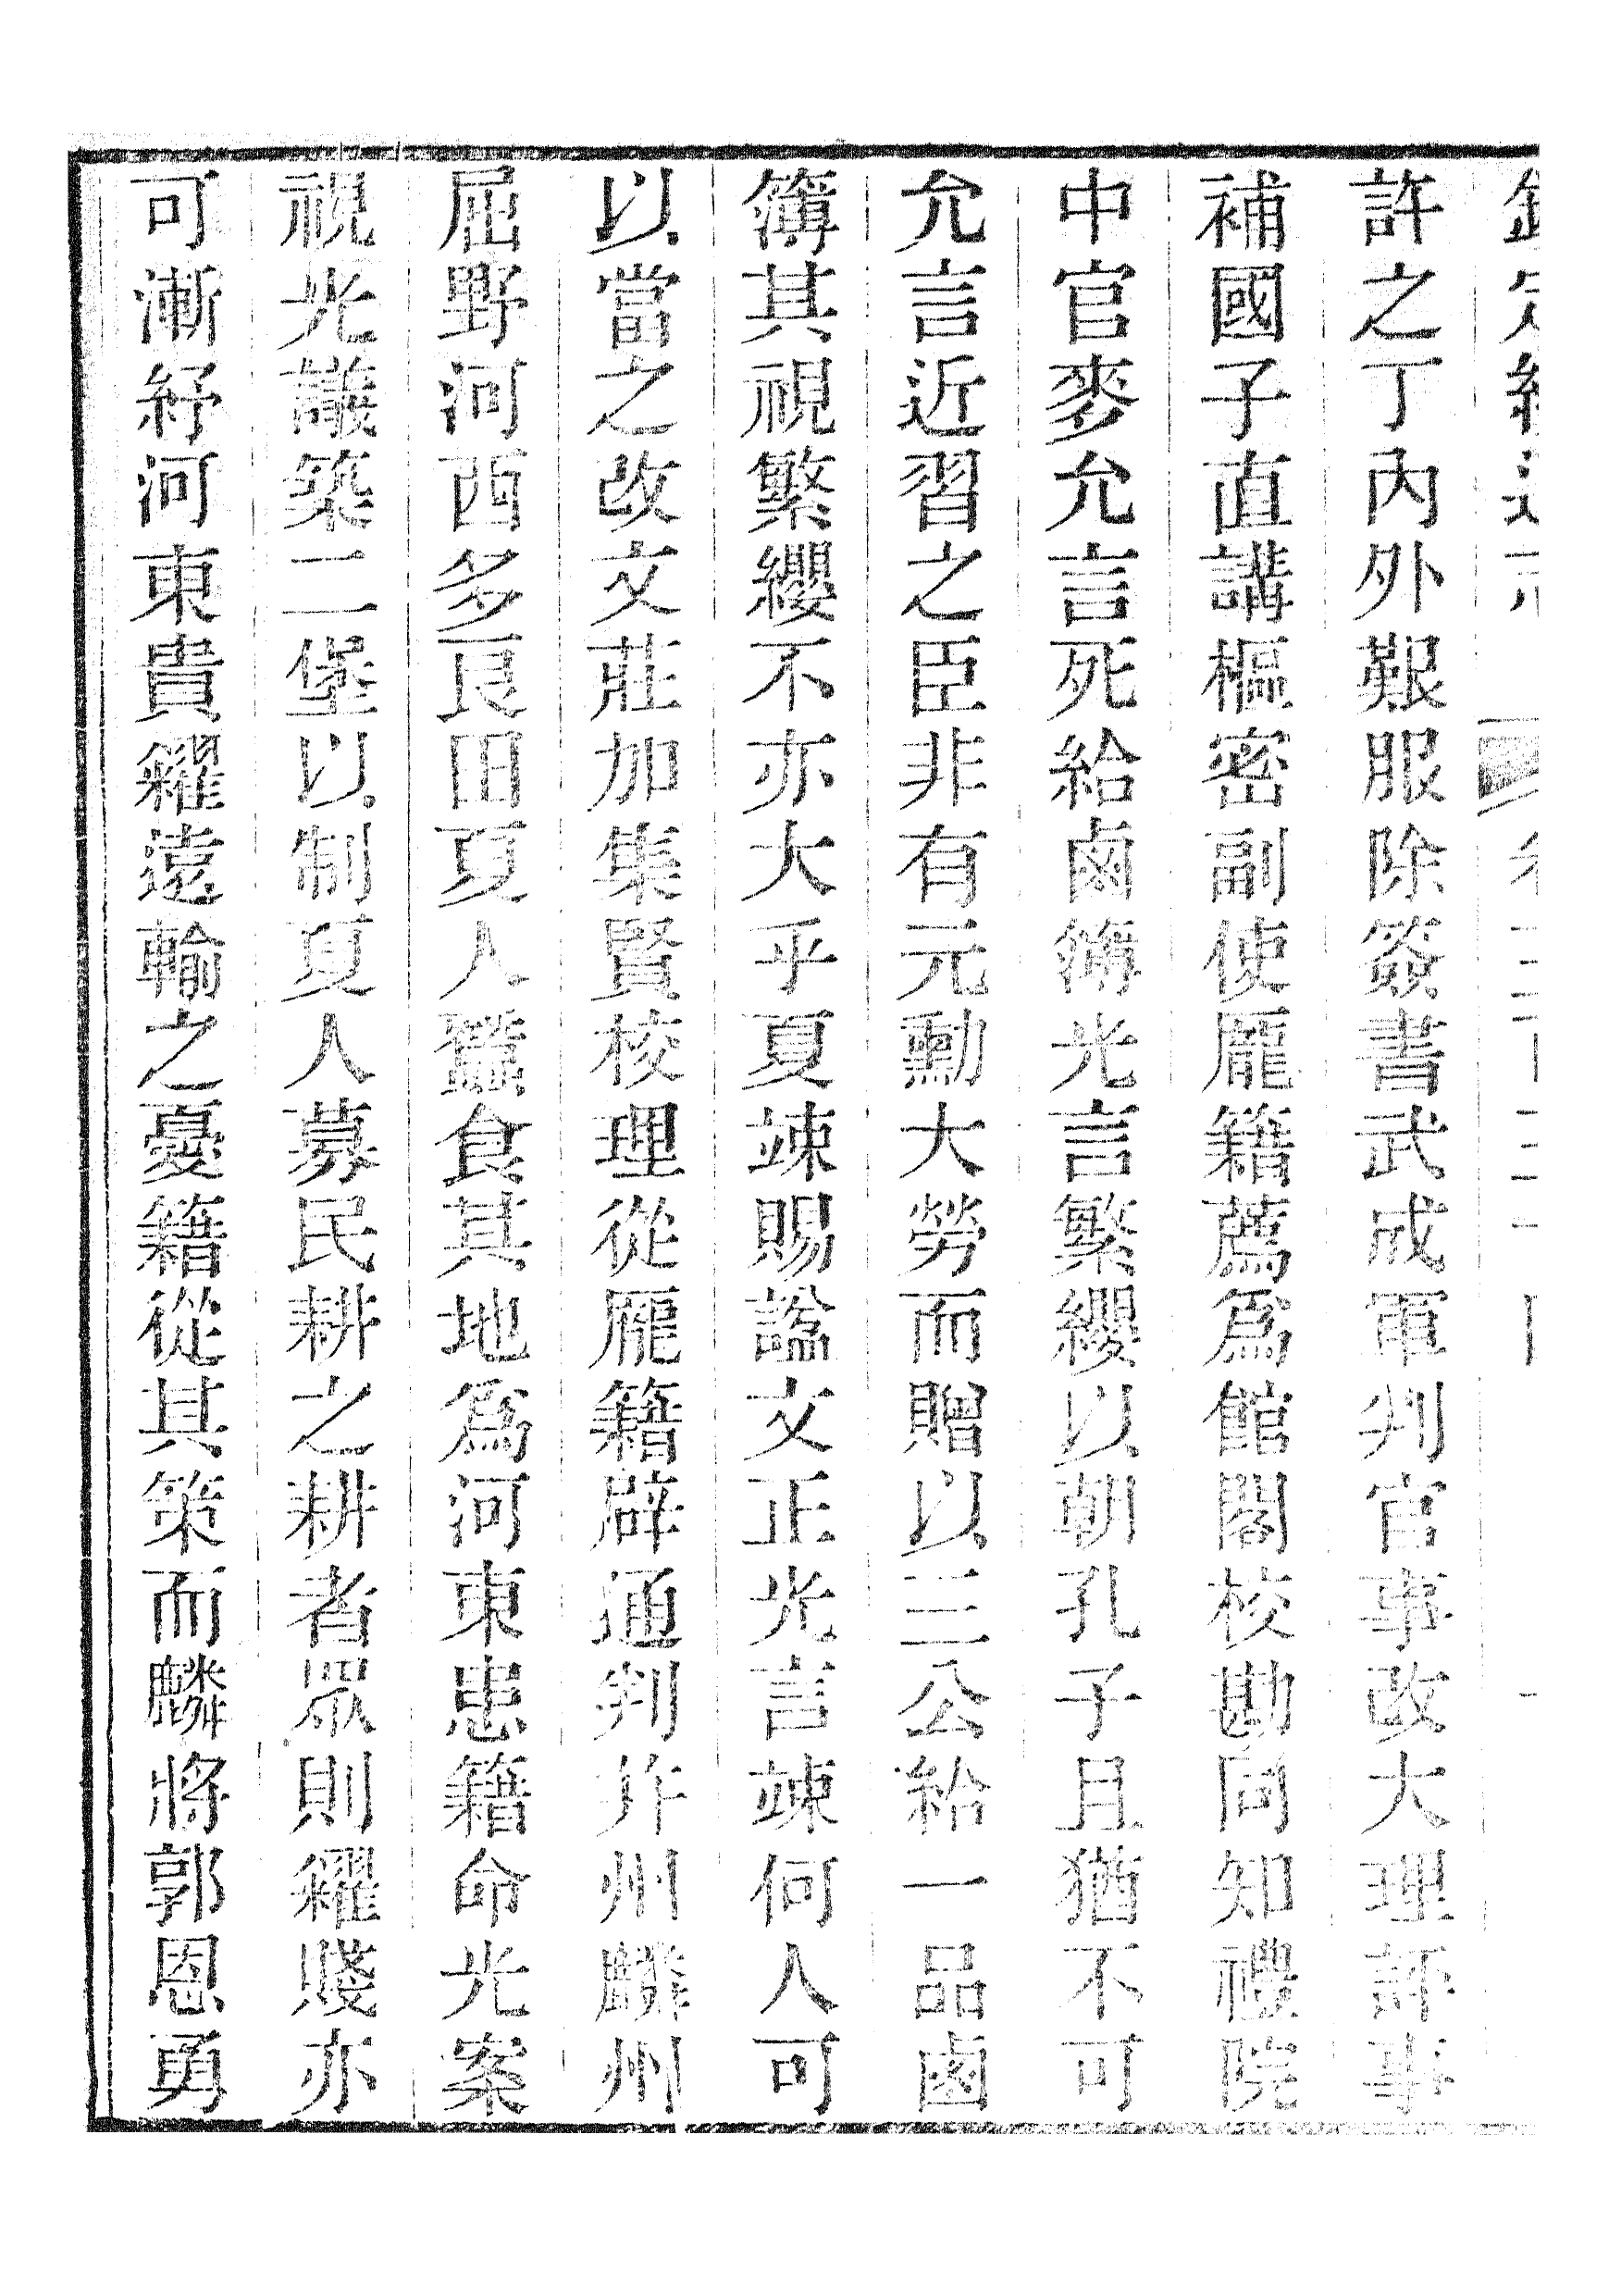 許之丁內外艱服除簽書武成軍判官事改大理評事
補國子直講樞密副使龎籍薦爲館閣校勘同知禮院
中官麥允言死給鹵簿光言繁纓以朝孔子且猶不可
允言近習之臣非有元勳大勞而贈以三公給一品鹵
簿其視繁纓不亦大乎夏竦賜諡文正光言竦何人可
以當之改文莊加集賢校理從龎籍辟通判并州麟州
屈野河西多良田夏人蠶食其地爲河東患籍命光案
視光議築二堡以制夏人募民耕之耕者眾則糴賤亦
可漸紓河東貴糴遠輸之憂籍從其策而麟將郭恩勇